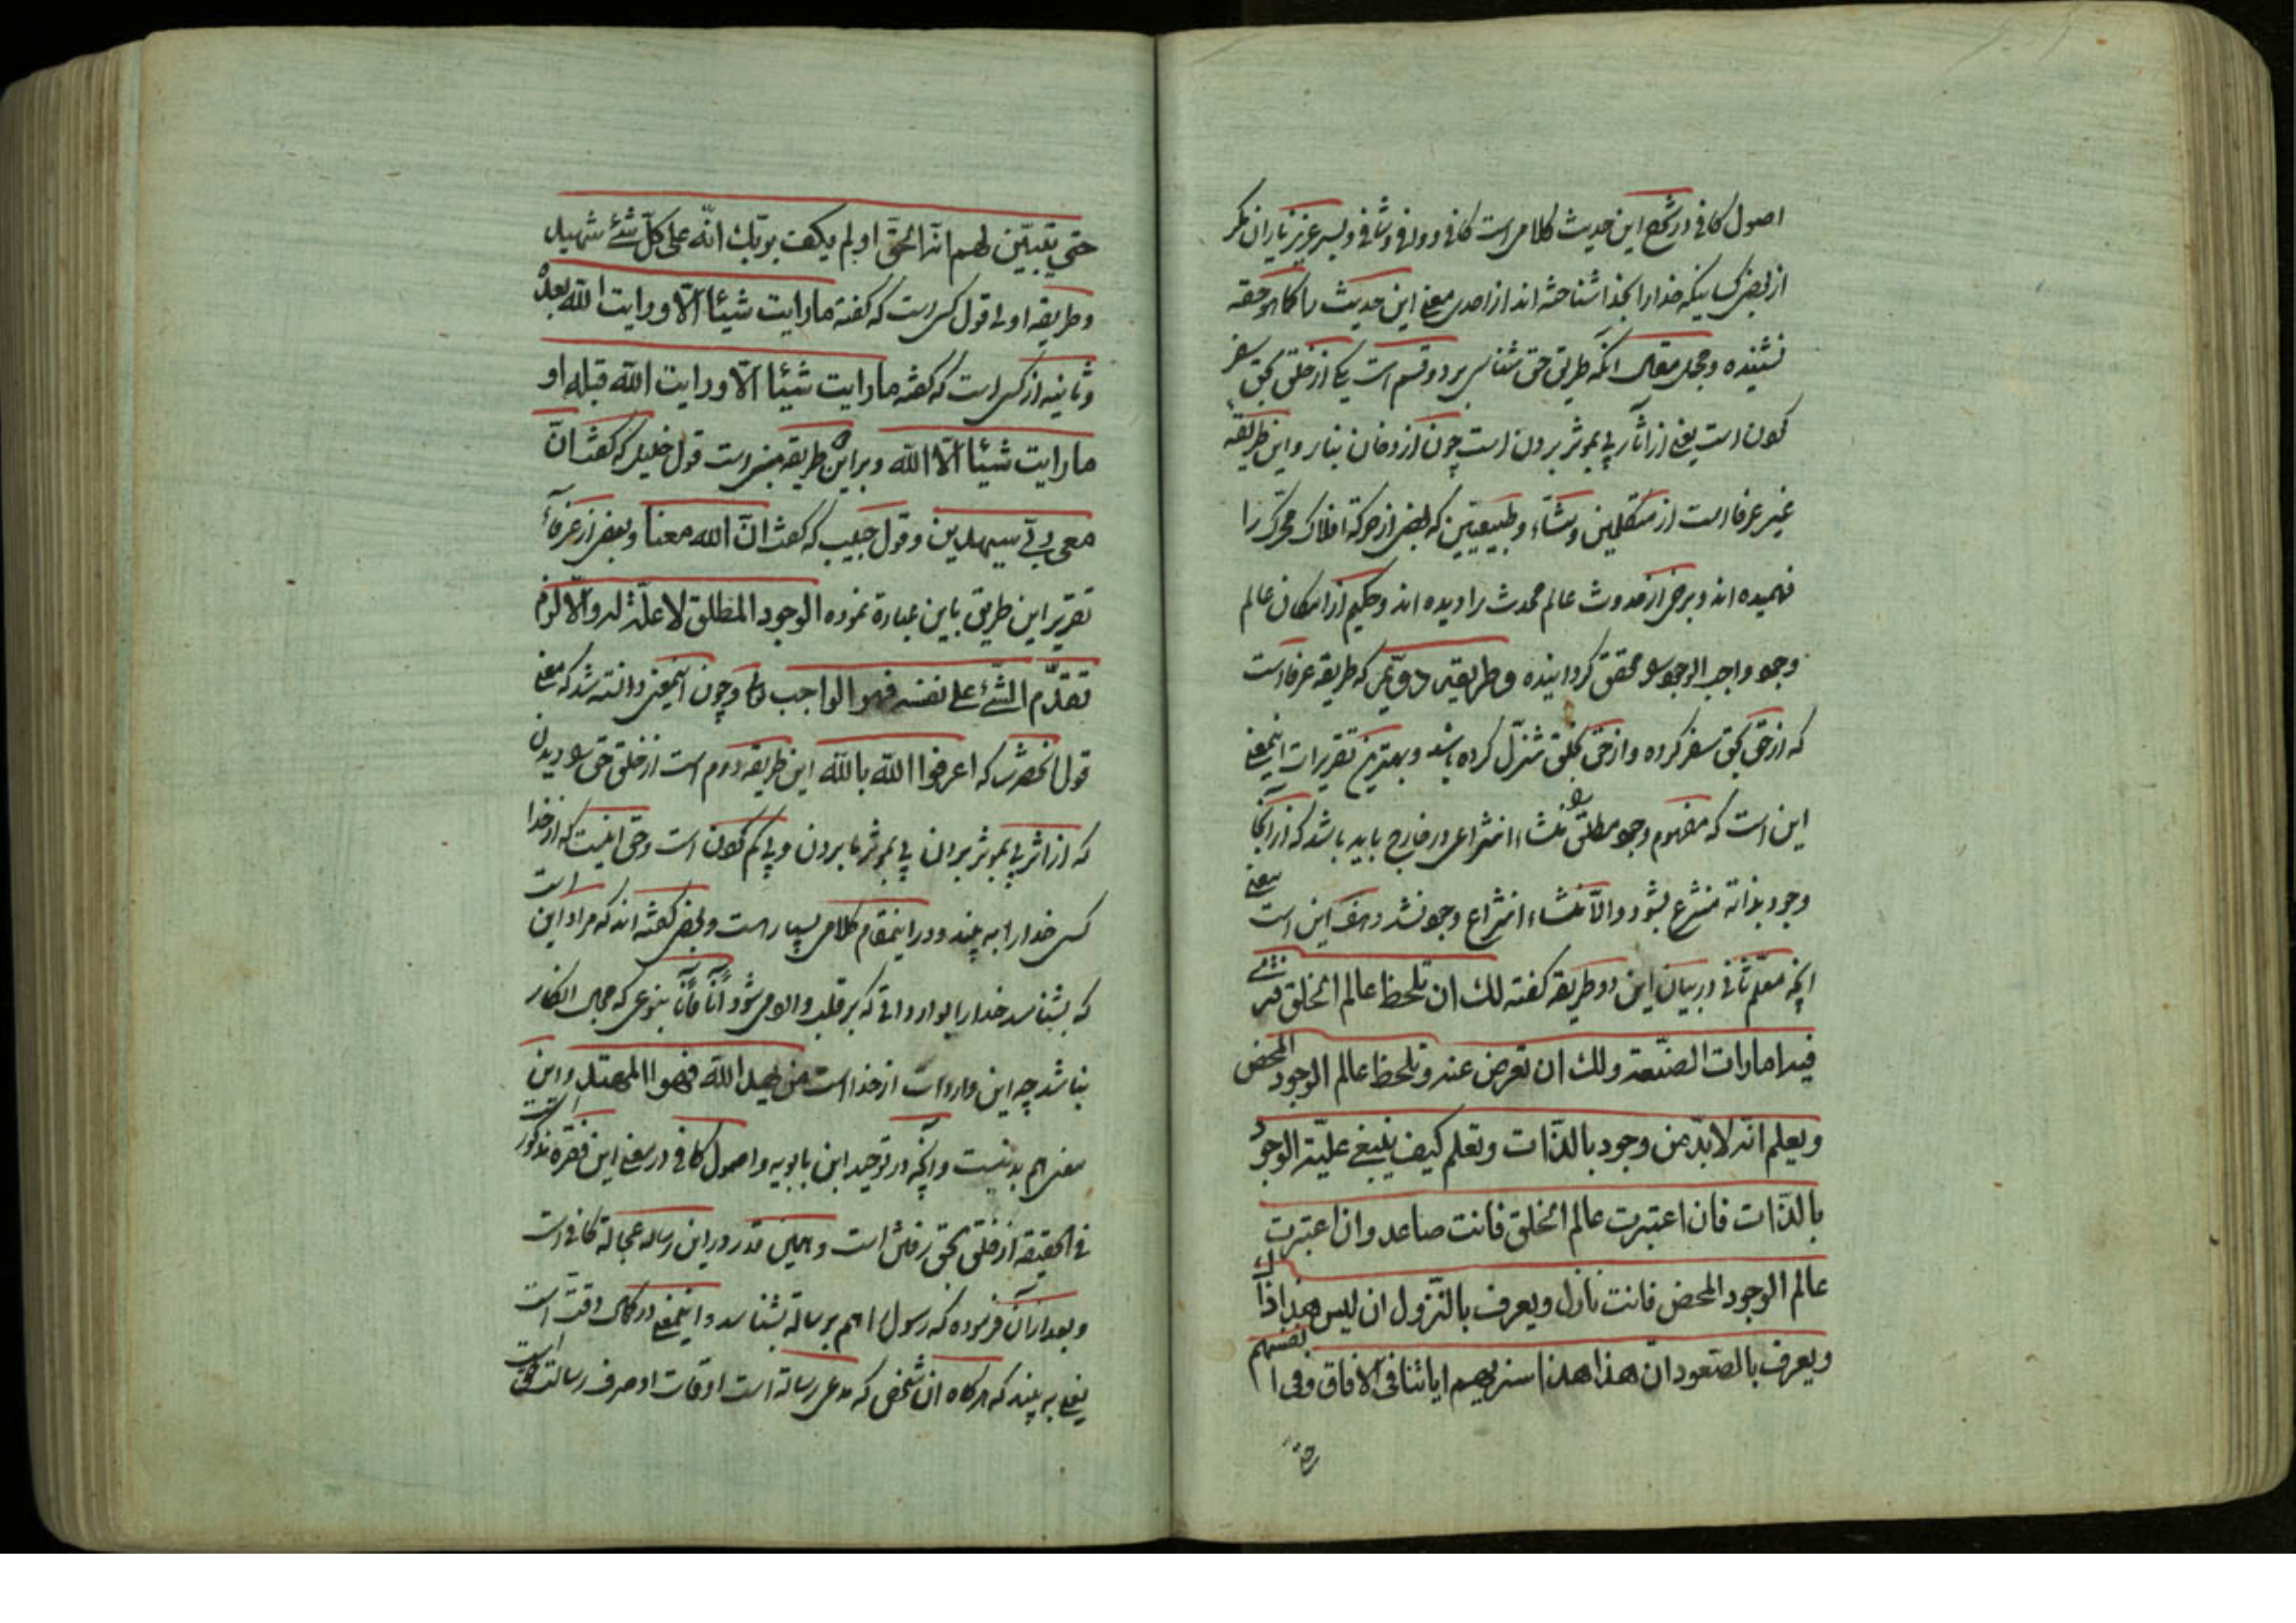 اصول کافی در شرح این حدیث کلامی است کافی و وافی و شافی و لیس عزیز یاران مکر
از بعضی کسانیکه خدا را بخدا شناخته اند از احدی معنی این حدیث را کما هو حقه
نشنیده و مجمل مقال آنکه طریق حق شناسی بر دو قسم است یکی از خلق بحق سفر
کردن است یعنی از آثار پی بموثر بردن است چون از دخان بنار و این طریقه
غیر عرفا است از متکلمین و مشاء و طبیعیین که بعضی از حرکة افلاک محرک را
فهمیده اند و برخی از حدوث عالم محدث را دیده اند و حکیم از امکان عالم
وجود واجب الوجود محقق گردانیده و طریقه دویّم که طریقه عرفا است
که از حق بحق سفر کرده و از حق بخلق تنزّل کرده باشد و بهترین تقریرات اینمعنی
این است که مفهوم وجود مطلق منشاء انتزاعی در خارج باید باشد که از آنجا
وجود بذاته منتزع بشود والّا منشاء انتزاع وجود نشد و هف این است یعنی
انچه معلّم ثانی در بیان این دو طریقه کفته لك ان تلحظ عالم الخلق فتری
فیه امارات الصنّعة ولك ان تعرض عنه وتلحظ عالم الوجود المحض
ویعلم انه لابدّ من وجود بالذّات وتعلم کیف ینبغی علیّة الوجود
بالذّات فان اعتبرت عالم الخلق فانت صاعد وان اعتبرت
عالم الوجود المحض فانت نازل ویعرف بالنّزول ان لیس هذا ذاك
ویعرف بالصّعود انّ هذا هذا سنریهم ایاتنا فی الافاق وفی انفسهم
حتی
حتی یتبیّن لهم انّه الحقّ اولم یکف بربّك انّه علی کلّ شئ شهید
وطریقه اولی قول کسی است که کفته ما رایت شیئا الّا ورایت الله بعده
و ثانیه از کسی است که کفته ما رایت شیئا الّا ورایت الله قبله او
ما رایت شیئا الّا الله و بر این طریقه مبنی است قول خلیل که کفت انّ
معی ربّی سیهدین و قول حبیب که کفت انّ الله معنا و بعضی از عرفاء
تقریر این طریق باین عبارة نموده الوجود المطلق لا علّة له والّا لزم
تقدّم الشّئ علی نفسه فهو الواجب و چون اینمعنی دانسته شد که معنی
قول انحضرت که اعرفوا الله بالله این طریقه دوم است از خلق حق دیدن
که از اثر پی بموثر بردن پی بموثر ما بردن و پی کم کردن است و حق اینست که از خدا
کسی خدا را به بیند و در اینمقام کلام بسیار است و بعضی کفته اند که مراد این است
که بشناسد خدا را بوارداتی که بر قلب وارد می شود آناً فآناً بنوعی که مجال انکار
نباشد چه این واردات از خدا است من یهد الله فهو المهتد و این
معنی هم بد نیست و آنچه در توحید ابن بابویه و اصول کافی در معنی این فقره مذکور است
فی الحقیقه از خلق بحق رفتن است و همین قدر در این رساله عجالة کافی است
و بعد از آن فرموده که رسول را هم برسالة بشناسد و اینمعنی در کمال دقت است
یعنی به بیند که هرگاه ان شخص که مدعی رسالة است اوقات او صرف رسالت است